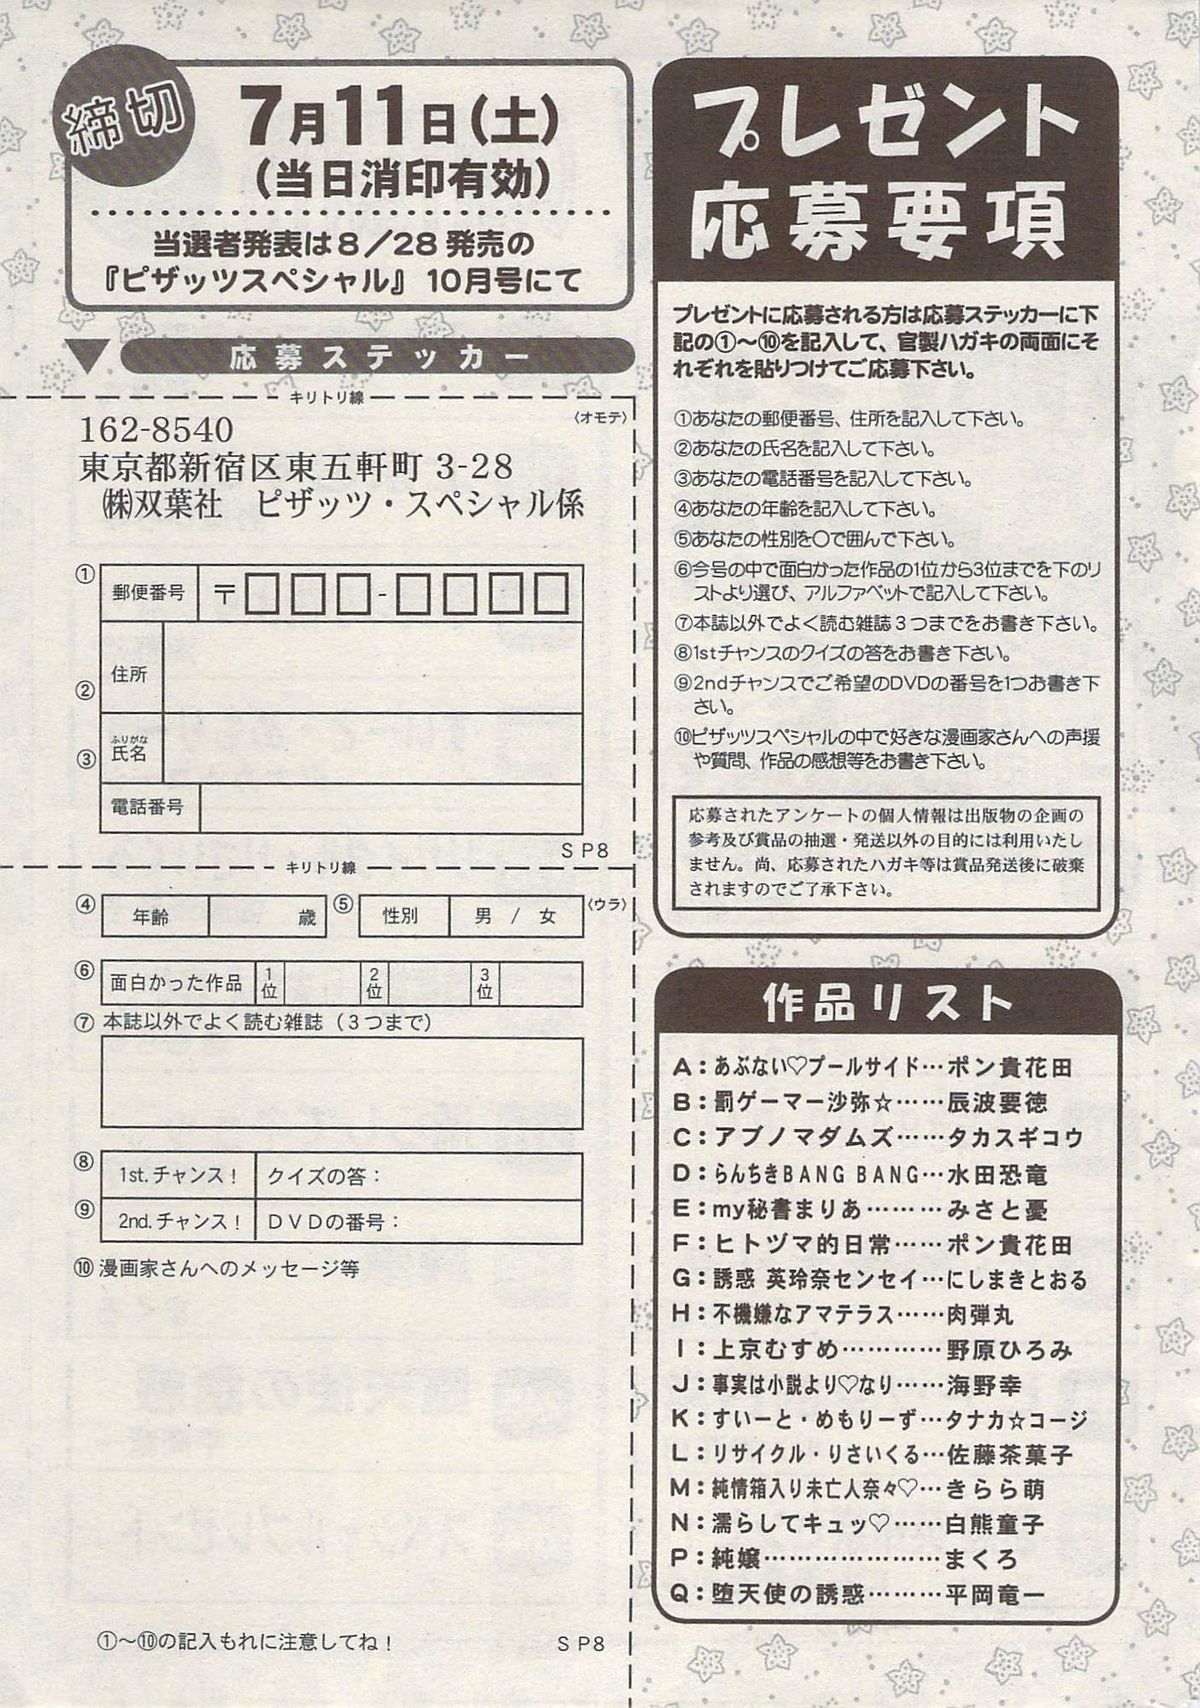 プレゼント
応募要項
プレゼントに応募される方は応募ステッカーに下
記の①〜⑩を記入して、官製ハガキの両面にそ
れぞれを貼りつけてご応募下さい。
①あなたの郵便番号、住所を記入して下さい。
②あなたの氏名を記入して下さい。
③あなたの電話番号を記入して下さい。
④あなたの年齢を記入して下さい。
⑤あなたの性別を〇で囲んで下さい。
⑥今号の中で面白かった作品の1位から3位までを下のリ
ストより選び、アルファベットで記入して下さい。
⑦本誌以外でよく読む雑誌３つまでをお書き下さい。
⑧1stチャンスのクイズの答をお書き下さい。
⑨2ndチャンスでご希望のDVDの番号を1つお書き下
さい。
⑩ピザッツスペシャルの中で好きな漫画家さんへの声援
や質問、作品の感想等をお書き下さい。
応募されたアンケートの個人情報は出版物の企画の
参考及び賞品の抽選・発送以外の目的には利用いたし
ません。尚、応募されたハガキ等は賞品発送後に破棄
されますのでご了承下さい。
締切
7月11日(土)
(当日消印有効)
当選者発表は8／28発売の
『ピザッツスペシャル』10月号にて
応募ステッカー
キリトリ線
〈オモテ〉
162-8540
東京都新宿区東五軒町 3-28
㈱双葉社　ピザッツ・スペシャル係
① 郵便番号 〒□□□-□□□□
② 住所
ふりがな
③ 氏名
電話番号
SP8
キリトリ線
〈ウラ〉
④ 年齢 歳 ⑤ 性別 男 / 女
⑥ 面白かった作品 1位 2位 3位
⑦ 本誌以外でよく読む雑誌（３つまで）
⑧ 1st.チャンス！ クイズの答：
⑨ 2nd.チャンス！ DVDの番号：
⑩ 漫画家さんへのメッセージ等
①〜⑩の記入もれに注意してね！
SP8
作品リスト
A：あぶない♡プールサイド…ポン貴花田
B：罰ゲーマー沙弥☆……辰波要徳
C：アブノマダムズ……タカスギコウ
D：らんちきBANG BANG…水田恐竜
E：my秘書まりあ………みさと憂
F：ヒトヅマ的日常……ポン貴花田
G：誘惑 英玲奈センセイ…にしまきとおる
H：不機嫌なアマテラス……肉弾丸
I：上京むすめ…………野原ひろみ
J：事実は小説より♡なり……海野幸
K：すいーと・めもりーず…タナカ☆コージ
L：リサイクル・りさいくる…佐藤茶菓子
M：純情箱入り未亡人奈々♡…きらら萌
N：濡らしてキュッ♡……白熊童子
P：純嬢…………………まくろ
Q：堕天使の誘惑………平岡竜一